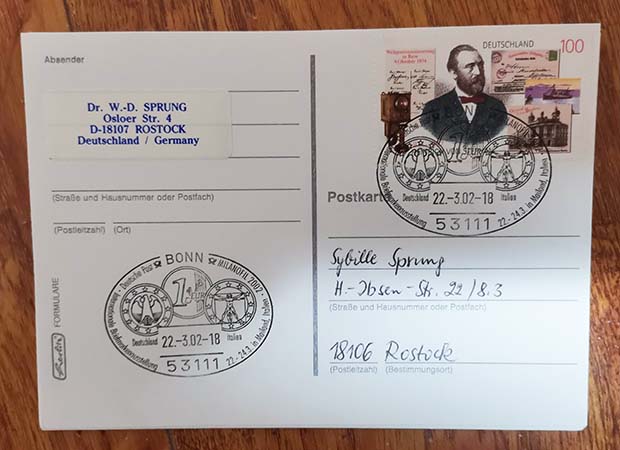 Absender
Dr. W.-D. SPRUNG
Osloer Str. 4
D-18107 ROSTOCK
Deutschland / Germany
(Straße und Hausnummer oder Postfach)
(Postleitzahl) (Ort)
FORMULARE
Herlitz
Deutsche Post BONN MILANOFIL 2002
1 EURO
Deutschland 22.-3.02-18 Italien
53111
Internationale Briefmarkenausstellung 22.-24.3. in Mailand, Italien
Weltpostvereinsvertrag
in Bern
9. Oktober 1874
DEUTSCHLAND 100
BONN MILANOFIL
1 EURO
Deutschland 22.-3.02-18 Italien
53111
Internationale Briefmarkenausstellung 22.-24.3. in Mailand, Italien
Postkarte
Sybille Sprung
H.-Ibsen-Str. 22/8.3
(Straße und Hausnummer oder Postfach)
18106 Rostock
(Postleitzahl) (Bestimmungsort)